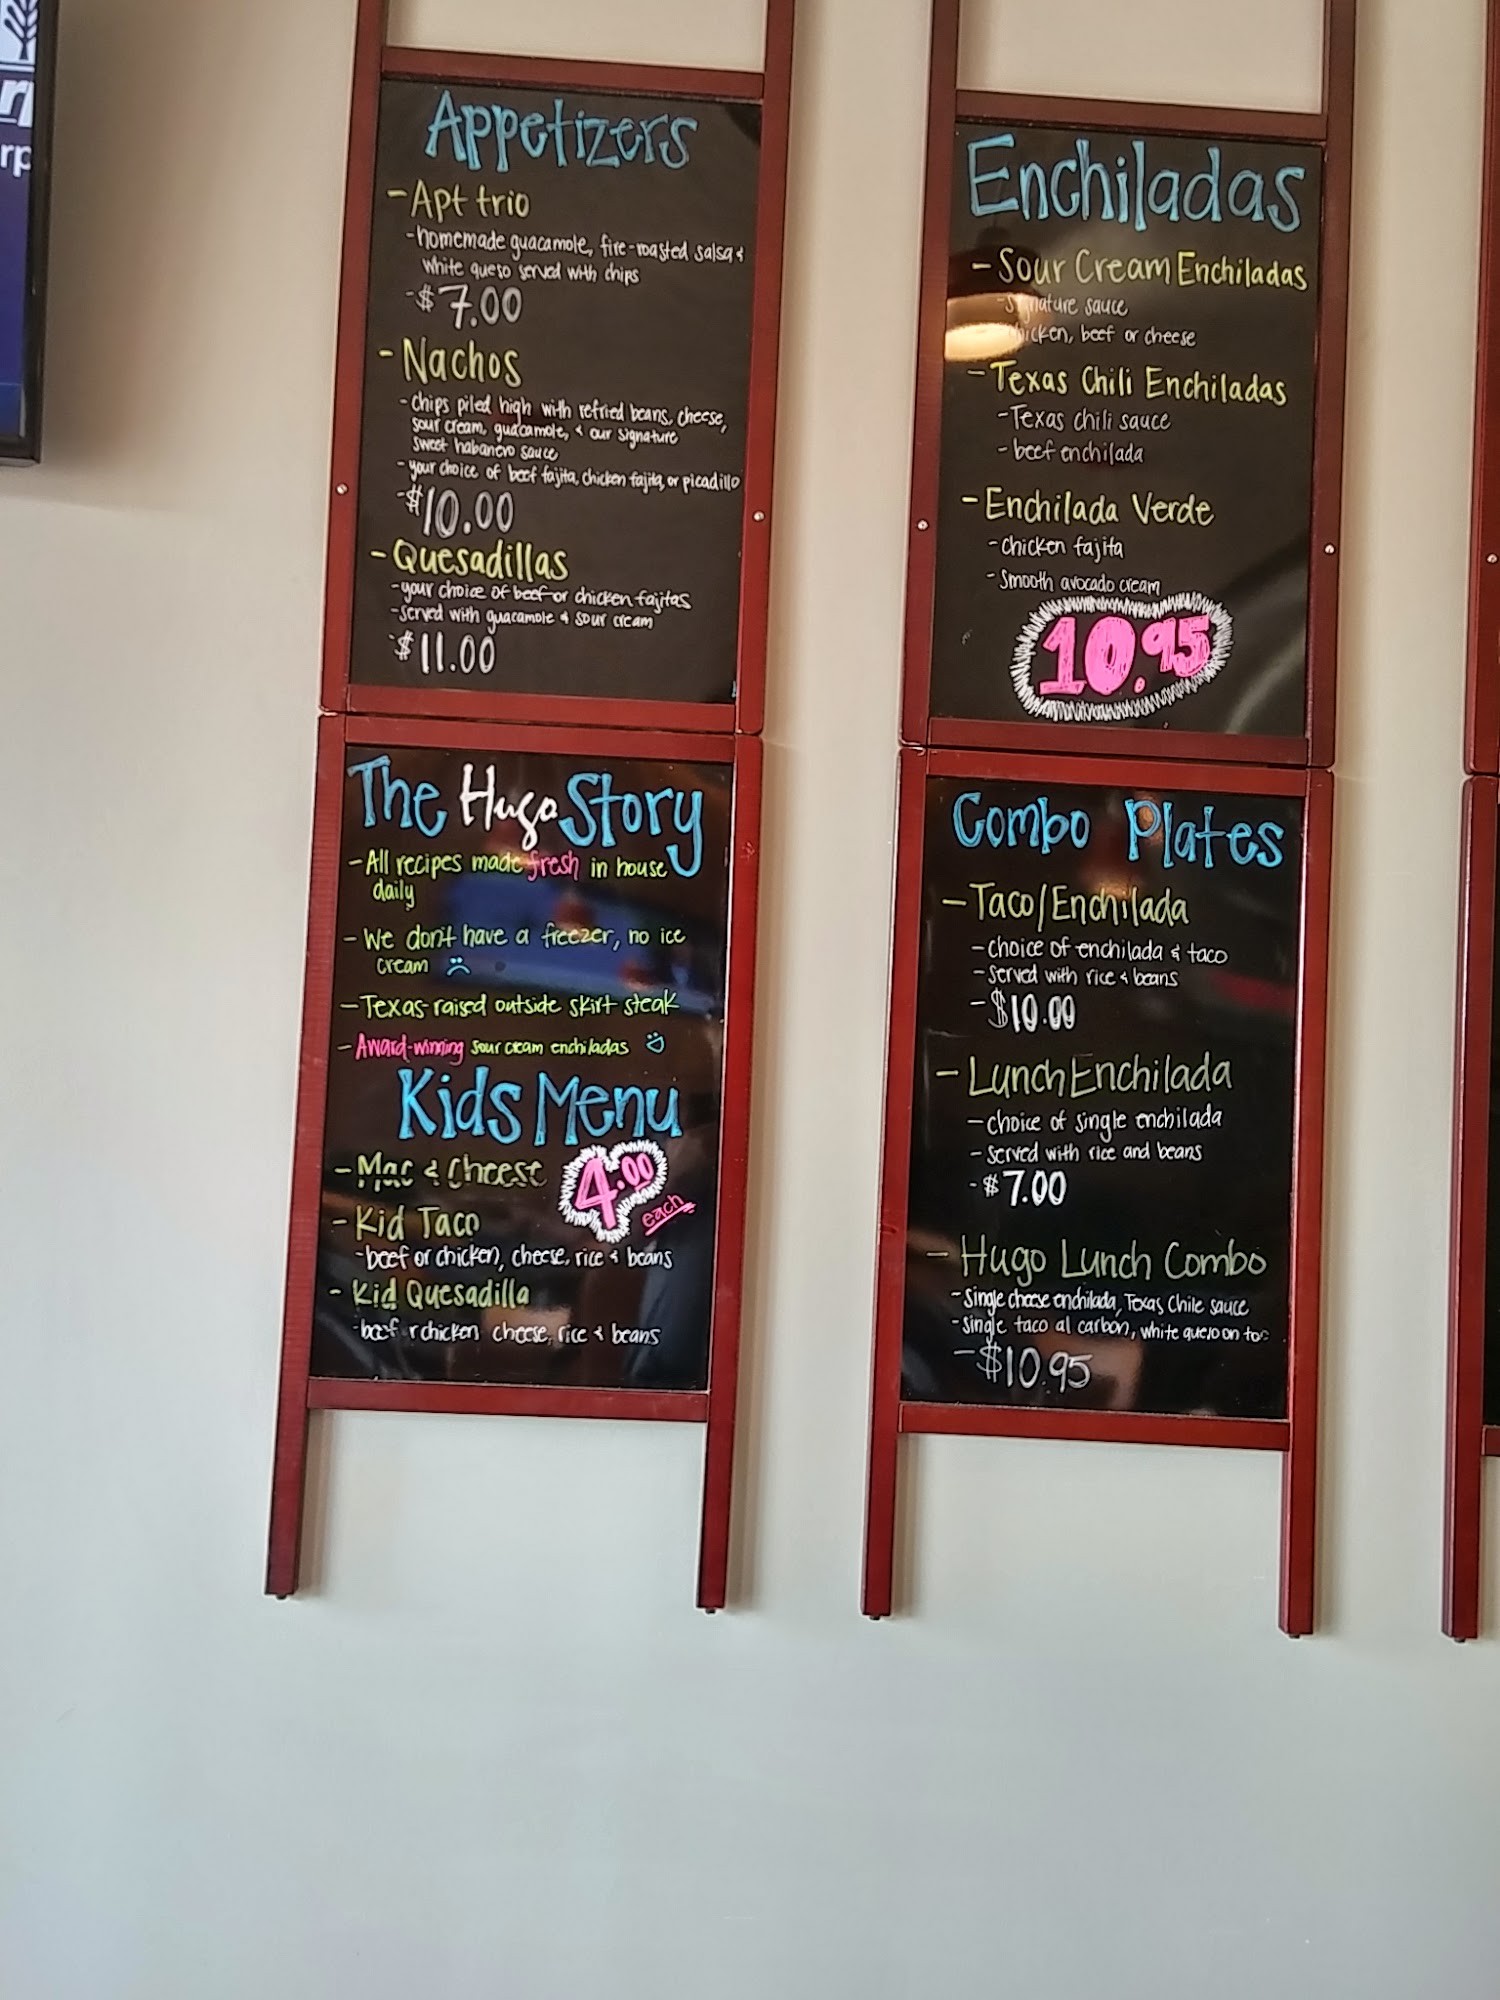 Appetizers
- Apt trio
- homemade guacamole, fire-roasted salsa &
white queso served with chips
- $7.00
- Nachos
- chips piled high with refried beans, cheese,
sour cream, guacamole, & our signature
sweet habanero sauce
- your choice of beef fajita, chicken fajita, or picadillo
- $10.00
- Quesadillas
- your choice of beef or chicken fajitas
- served with guacamole & sour cream
- $11.00
The Hugo Story
- All recipes made fresh in house
daily
- We don't have a freezer, no ice
cream
- Texas-raised outside skirt steak
- Award-winning sour cream enchiladas
Kids Menu
- Mac & Cheese
4.00
each
- Kid Taco
- beef or chicken, cheese, rice & beans
- Kid Quesadilla
- beef r chicken cheese, rice & beans
Enchiladas
- Sour Cream Enchiladas
- Signature sauce
chicken, beef or cheese
- Texas Chili Enchiladas
- Texas chili sauce
- beef enchilada
- Enchilada Verde
- chicken fajita
- Smooth avocado cream
10.95
Combo Plates
- Taco/Enchilada
- choice of enchilada & taco
- served with rice & beans
- $10.00
- Lunch Enchilada
- choice of single enchilada
- served with rice and beans
- $7.00
- Hugo Lunch Combo
- single cheese enchilada, Texas Chile sauce
- single taco al carbon, white queso on
- $10.95